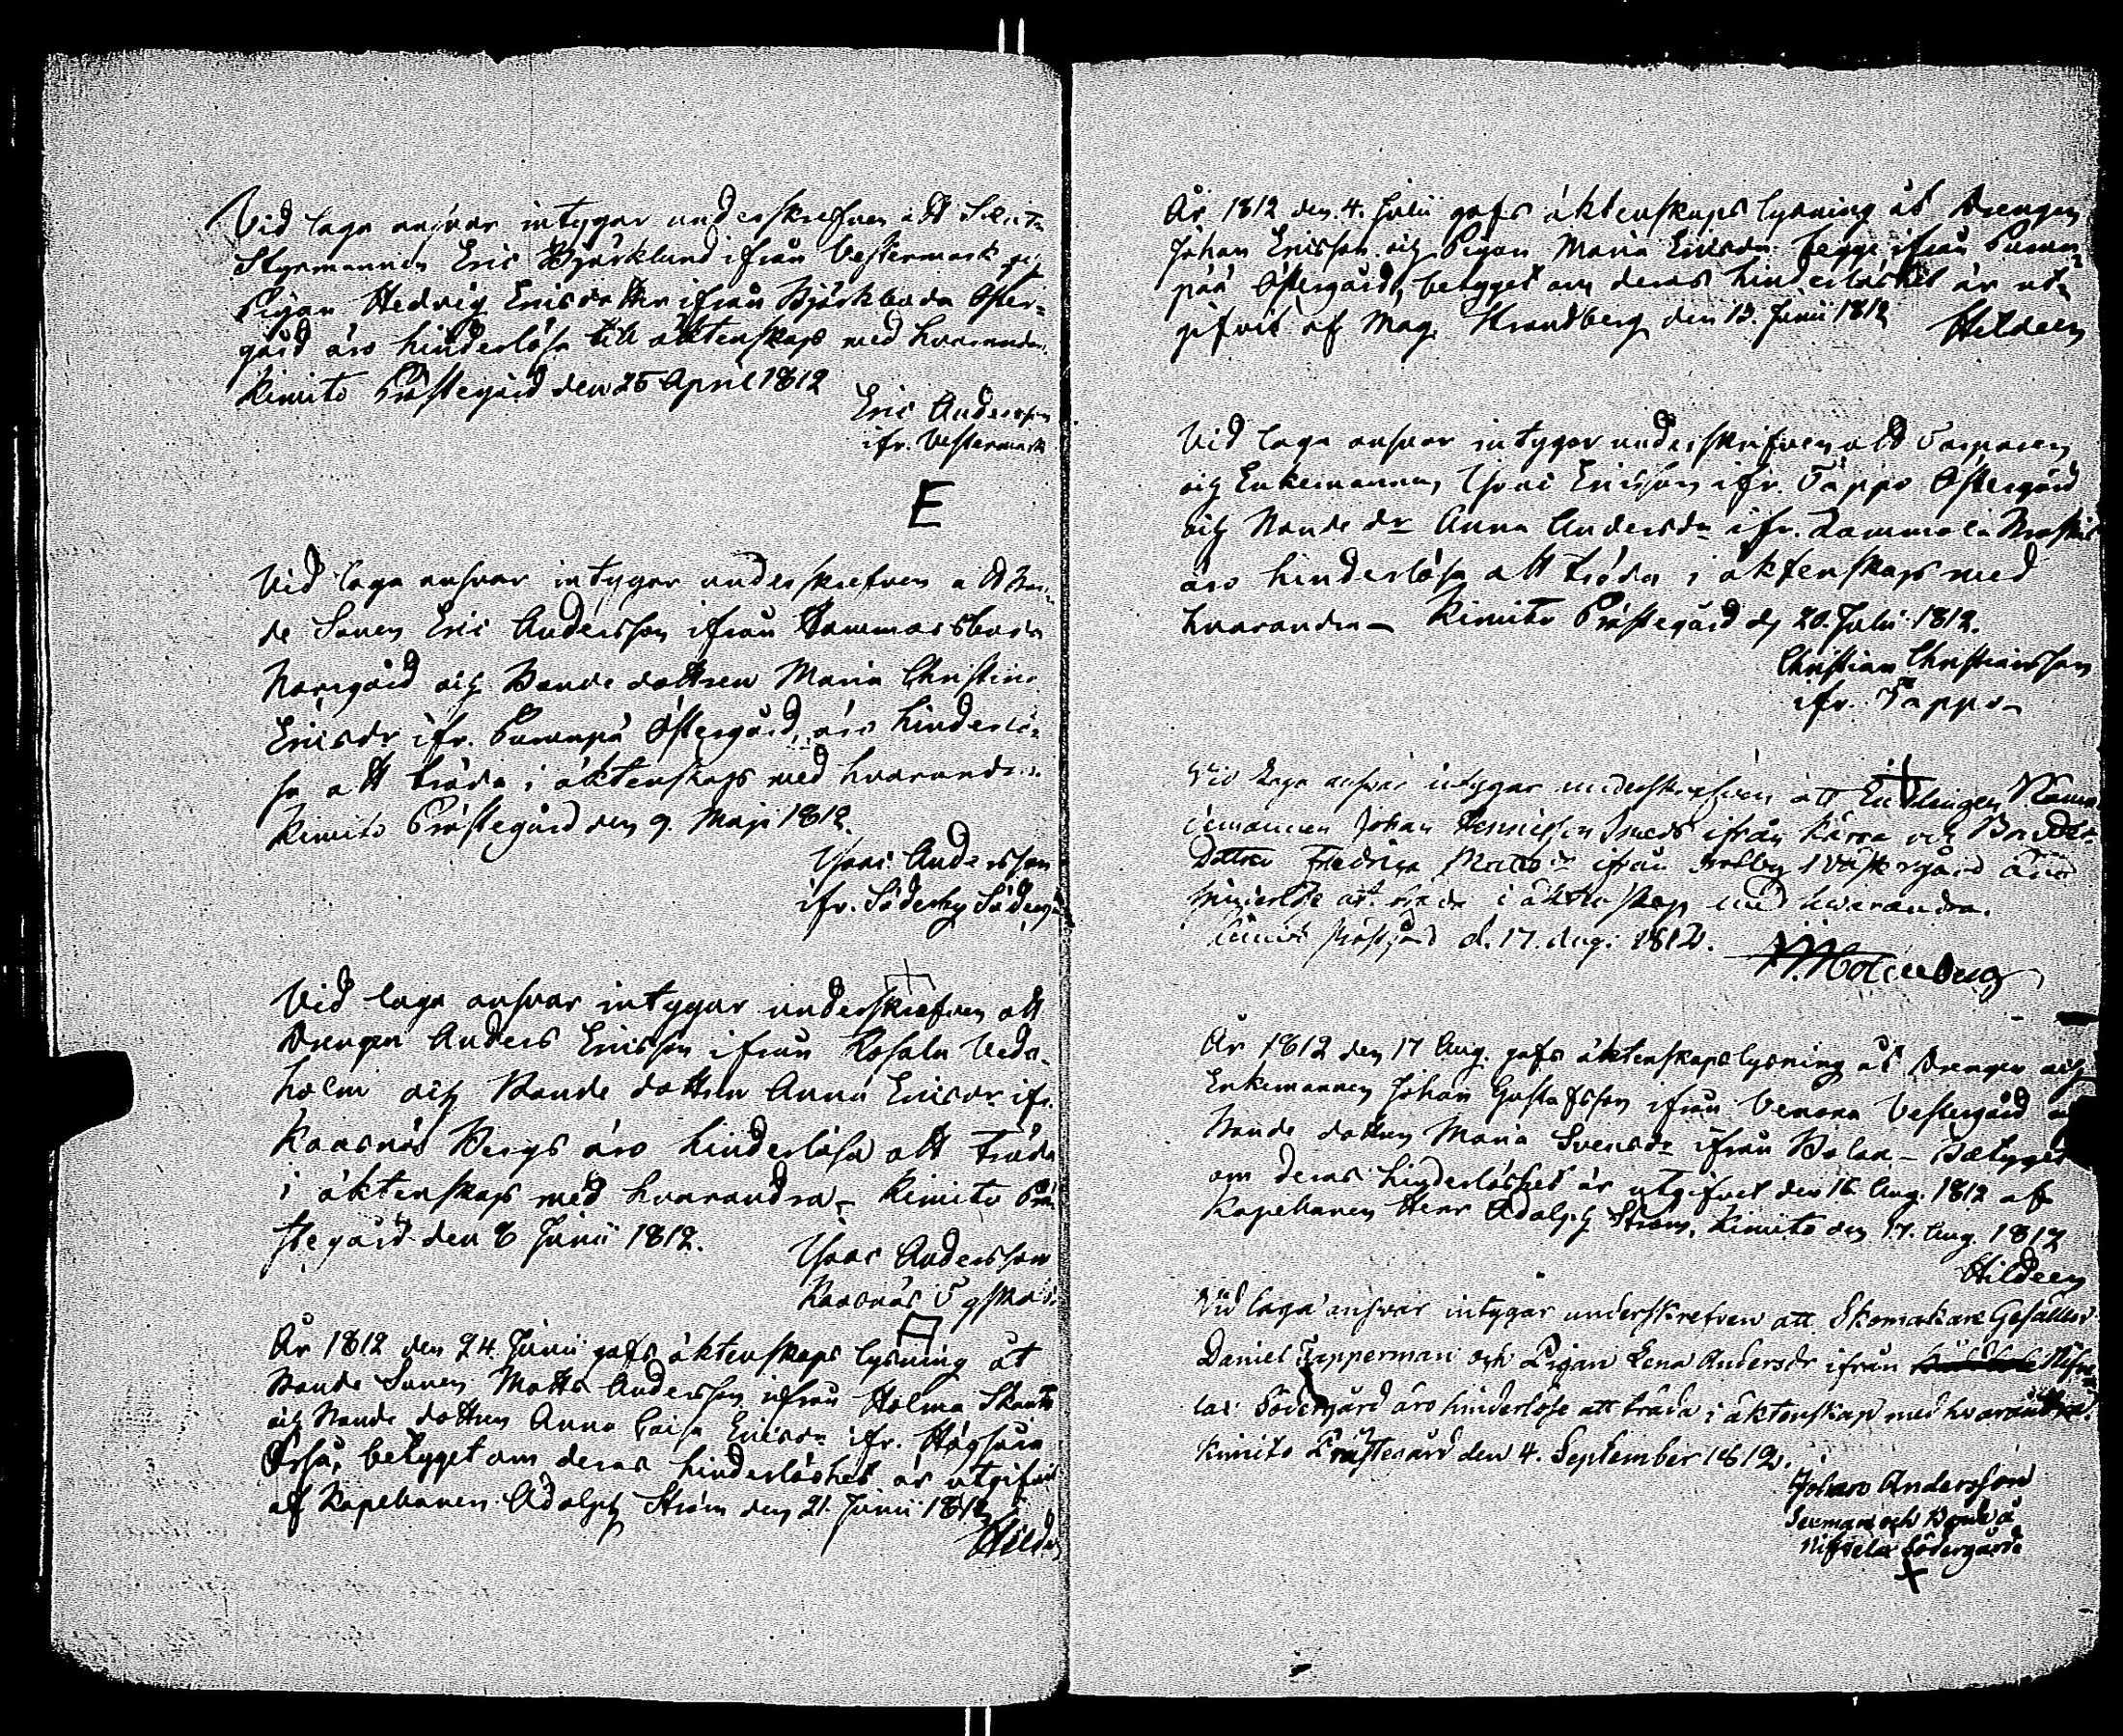 Vid laga ansvar intygar underskrefven att
Styrmannen Eric Björklund ifrån Vestermark och
Pigan Hedvig Ericsdotter ifrån Björkboda Öster-
gård äro hinderlösa till äktenskap med hvarandra.
Kimito Prästegård den 25 April 1812
Eric Andersson
ifr. Vestermark
E
Vid laga ansvar intygar underskrefven att Bon-
de Sonen Eric Andersson ifrån Hammarsboda
Norrgård och Bonde dottren Maria Christina
Ericsdr ifr. Purunpä Östergård, äro hinderlö-
sa att träda i äktenskap med hvarandra.
Kimito Prästegård den 9. Maji 1812.
Isaac Andersson
ifr. Söderby
Vid laga ansvar intygar underskrefven att
Drengen Anders Ericsson ifrån Rosala Veda-
holm och Bonde dottren Anna Ericsdr ifr.
Kaasnäs Bergs äro hinderlösa att träda
i äktenskap med hvarandra – Kimito Prä
stegård den 6 Junii 1812.
Isaac Andersson
Kaasnäs
År 1812 den 24. Junii gafs äktenskaps lysning åt
Bonde Sonen Matts Andersson ifrån Holma
och Bonde dottren Anna Caisa Ericsdr ifr. Högsåra
betyget om deras hinderlöshet är utgifvit
af Kapellanen Adolph Ström den 21. Junii 1812
Hildeen
År 1812 den 4. Julii gafs äktenskaps lysning åt Drengen
Johan Ericsson och Pigan Maria Ericsdr begge ifrån Purun-
pää Östergård, betyget om deras hinderlöshet är ut-
gifvit af Mag. Strandberg den 13. Junii 1812
Hildeen
Vid laga ansvar intygar underskrifven att
och Enkemannen Isaac Ericsson ifr. Tappo Östergård
och Bonde dr Anna Andersdr ifr.
äro hinderlösa att träda i äktenskap med
hvarandra – Kimito Prästegård d. 20. Julii 1812.
Christian Christiansson
ifr. Tappo
Vid Laga ansvar intygar underskrefven att
Johan ifrån Kärra och Bonde-
Dottren Fredrica Matsdr ifrån Westergård äro
hinderlöse att träda i äktenskap med hwarandra.
Kimito Prästgård d. 17. Aug. 1812.
År 1812 den 17 Aug. gafs äktenskapslysning åt Drengen och
Enkemannen Johan Gustafsson ifrån Vestergård och
Bonde dottren Maria Svensdr ifrån – Betyget
om deras hinderlöshet är utgifvet den 16 Aug. 1812 af
Kapellanen Herr Adolph Ström. Kimito den 17. Aug. 1812
Hildeen
Vid laga ansvar intygar underskrefven att Skomakare Gesällen
Daniel Tapperman och Pigan Lena Andersdr ifrån
lax Södergård äro hinderlöse att träda i äktenskap med hvarandra.
Kimito Prästegård den 4. September 1812.
Johan Andersson
och Bonde å
Södergård
X